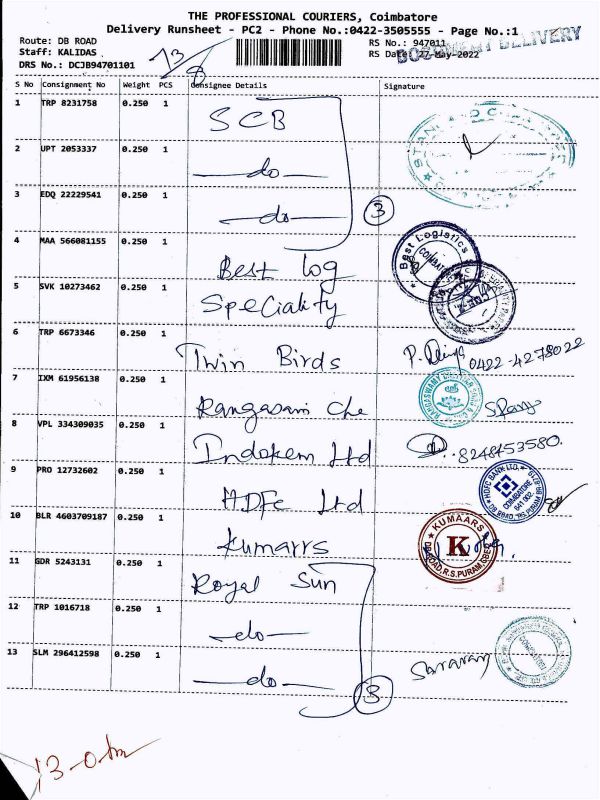 THE PROFESSIONAL COURIERS, Coimbatore
Delivery Runsheet - PC2 - Phone No.:0422-3505555 - Page No.:1
Route: DB ROAD
Staff: KALIDAS
DRS No.: DCJB94701101
13/8
RS No.: 947011
RS Date: 27-May-2022
DOCUMENT DELIVERY
S No Consignment No Weight PCS Consignee Details Signature
1 TRP 8231758 0.250 1 SCB
2 UPT 2053337 0.250 1 —do—
3 EDQ 22229541 0.250 1 —do— 3
4 MAA 566081155 0.250 1 Best log Best Logistics
5 SVK 10273462 0.250 1 Speciality
6 TRP 6673346 0.250 1 Twin Birds 0422-4278022
7 IXM 61956138 0.250 1 Rangasami Che
8 VPL 334309035 0.250 1 Indokem Ltd 8248453580.
9 PRO 12732602 0.250 1 HDFC Ltd HDFC BANK LTD. COIMBATORE 641 002.
10 BLR 4603709187 0.250 1 Kumarrs KUMAARS K DB ROAD, R.S.PURAM, SBE
11 GDR 5243131 0.250 1 Royal Sun
12 TRP 1016718 0.250 1 —do—
13 SLM 296412598 0.250 1 —do— 3